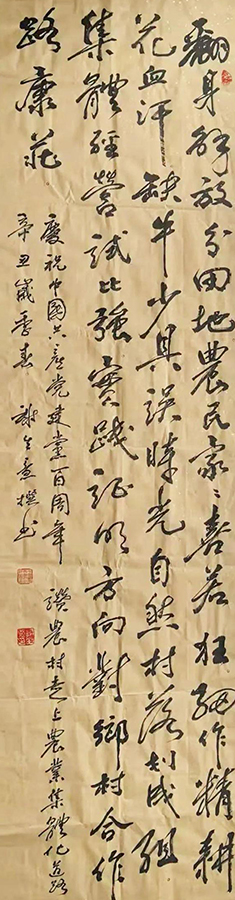 翻身解放分田地農民家家喜若狂細作精耕
花血汗缺牛少具誤時光自然村落划成組
集體經營試比強實踐证明方向對鄉村合作
路康莊
讚農村走上農業集體化道路
慶祝中國共產黨建黨百周年
辛丑歲季春 謝